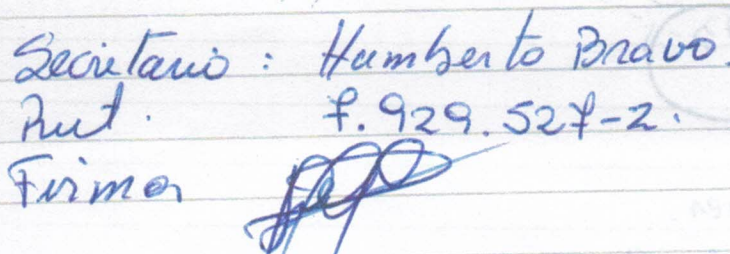 Secretario : Humberto Bravo.
Rut. 7.929.527-2.
Firma